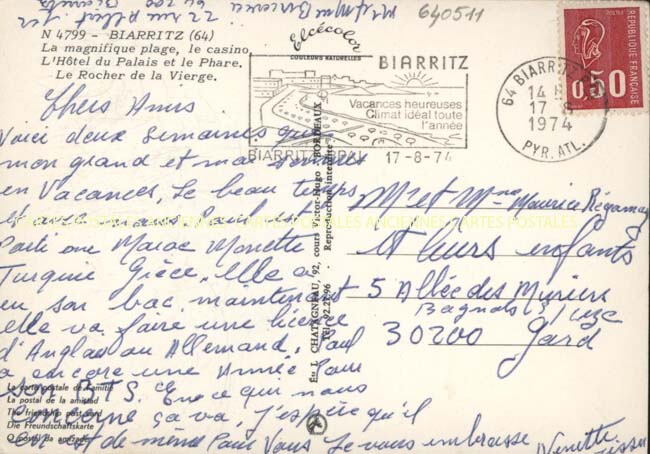 640511
22 rue
64200 Biarritz
N 4799 - BIARRITZ (64)
La magnifique plage, le casino
L'Hôtel du Palais et le Phare.
Le Rocher de la Vierge.
Elcécolor
COULEURS NATURELLES
BIARRITZ
Vacances heureuses
Climat idéal toute
l'année
BIARRITZ PPAL 17-8-74
64 BIARRITZ
17 -8
1974
PYR. ATL.
REPUBLIQUE FRANÇAISE
0,50
Chers Amis
Voici deux semaines que
mon grand et moi sommes
en Vacances, le beau temps
est avec nous Paul est
Parti au Maroc Monette
Turquie Grèce, elle a
eu son bac maintenant
elle va faire une licence
d'Anglais ou Allemand, Paul
a encore une Année pour
son B.T.S. En ce qui nous
concerne ça va, j'espère qu'il
en est de même pour Vous Je vous embrasse
Ninette
Mr et Mme Maurice Régamay
et leurs enfants
5 Allée des Muriers
Bagnols s/ Ceze
30200 Gard
Éd. L. CHATAGNEAU, 92, cours Victor-Hugo BORDEAUX
Reproduction interdite
CARTES POSTALES ANCIENNES
La carte postale de l'amitié
La postal de la amistad
The friendship post card
Die Freundschaftskarte
O postal da amizade